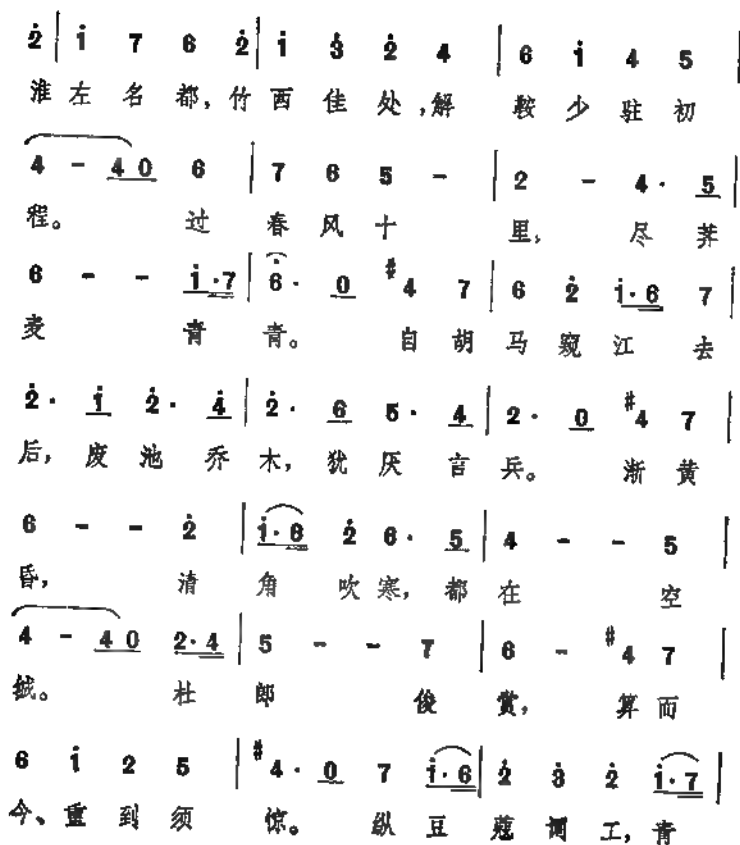 2̇ | 1̇ 7 6 2̇ | 1̇ 3̇ 2̇ 4 | 6 1̇ 4 5 |
淮左名都,竹西佳处,解鞍少驻初
4 - 4 0 6 | 7 6 5 - | 2 - 4· 5 |
程。过春风十里,尽荠
6 - - 1̇·7 | 6̇· 0 #4 7 | 6 2̇ 1̇·6 7 |
麦青青。自胡马窥江去
2̇· 1̇ 2̇· 4̇ | 2̇· 6 5· 4 | 2· 0 #4 7 |
后,废池乔木,犹厌言兵。渐黄
6 - - 2̇ | 1̇·6 2̇ 6· 5 | 4 - - 5 |
昏,清角吹寒,都在空
4 - 4 0 2·4 | 5 - - 7 | 6 - #4 7 |
城。杜郎俊赏,算而
6 1̇ 2 5 | #4· 0 7 1̇·6 | 2̇ 3̇ 2̇ 1̇·7 |
今、重到须惊。纵豆蔻词工,青